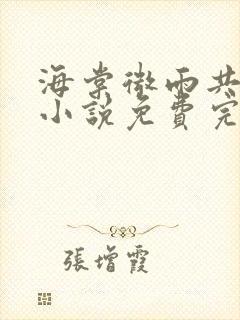 海棠微雨共
小說免費完
張增霞